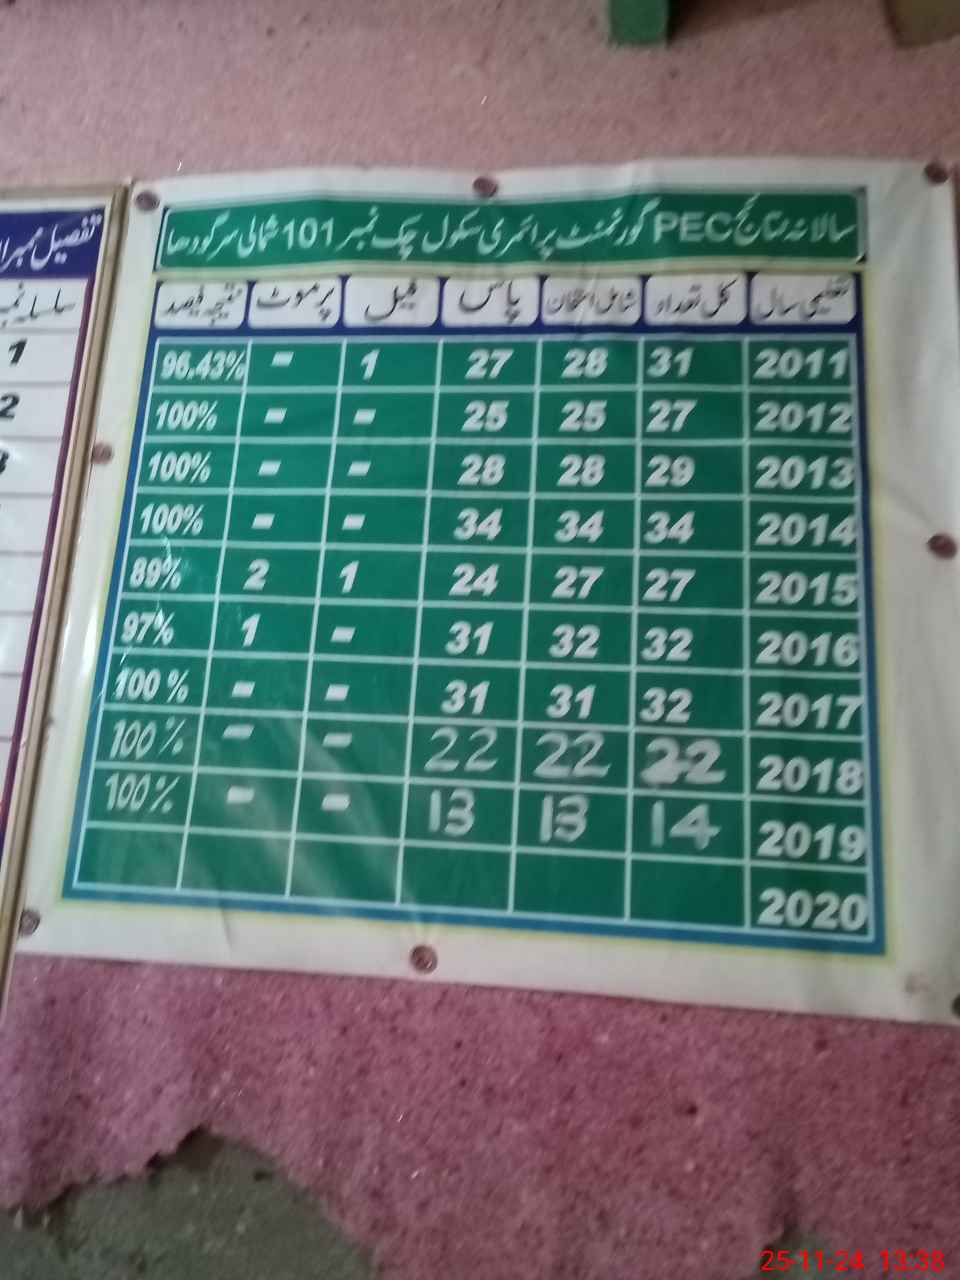 سالانہ نتائج PEC گورنمنٹ پرائمری سکول چک نمبر 101 شمالی سرگودھا
تعلیمی سال کل تعداد شامل امتحان پاس فیل پرموٹ نتیجہ فیصد
2011 31 28 27 1 - 96.43%
2012 27 25 25 - - 100%
2013 29 28 28 - - 100%
2014 34 34 34 - - 100%
2015 27 27 24 1 2 89%
2016 32 32 31 - 1 97%
2017 32 31 31 - - 100 %
2018 22 22 22 - - 100%
2019 14 13 13 - - 100%
2020
تفصیل
سلسلہ
1
2
25-11-24 13:38